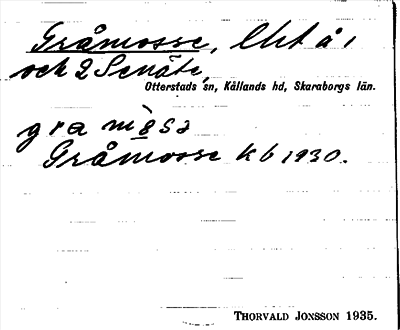 Gråmosse, Cht å 1
och 2 Senäte,
Otterstads sn, Kållands hd, Skaraborgs län.
Gråmosse kb 1930.
THORVALD JONSSON 1935.